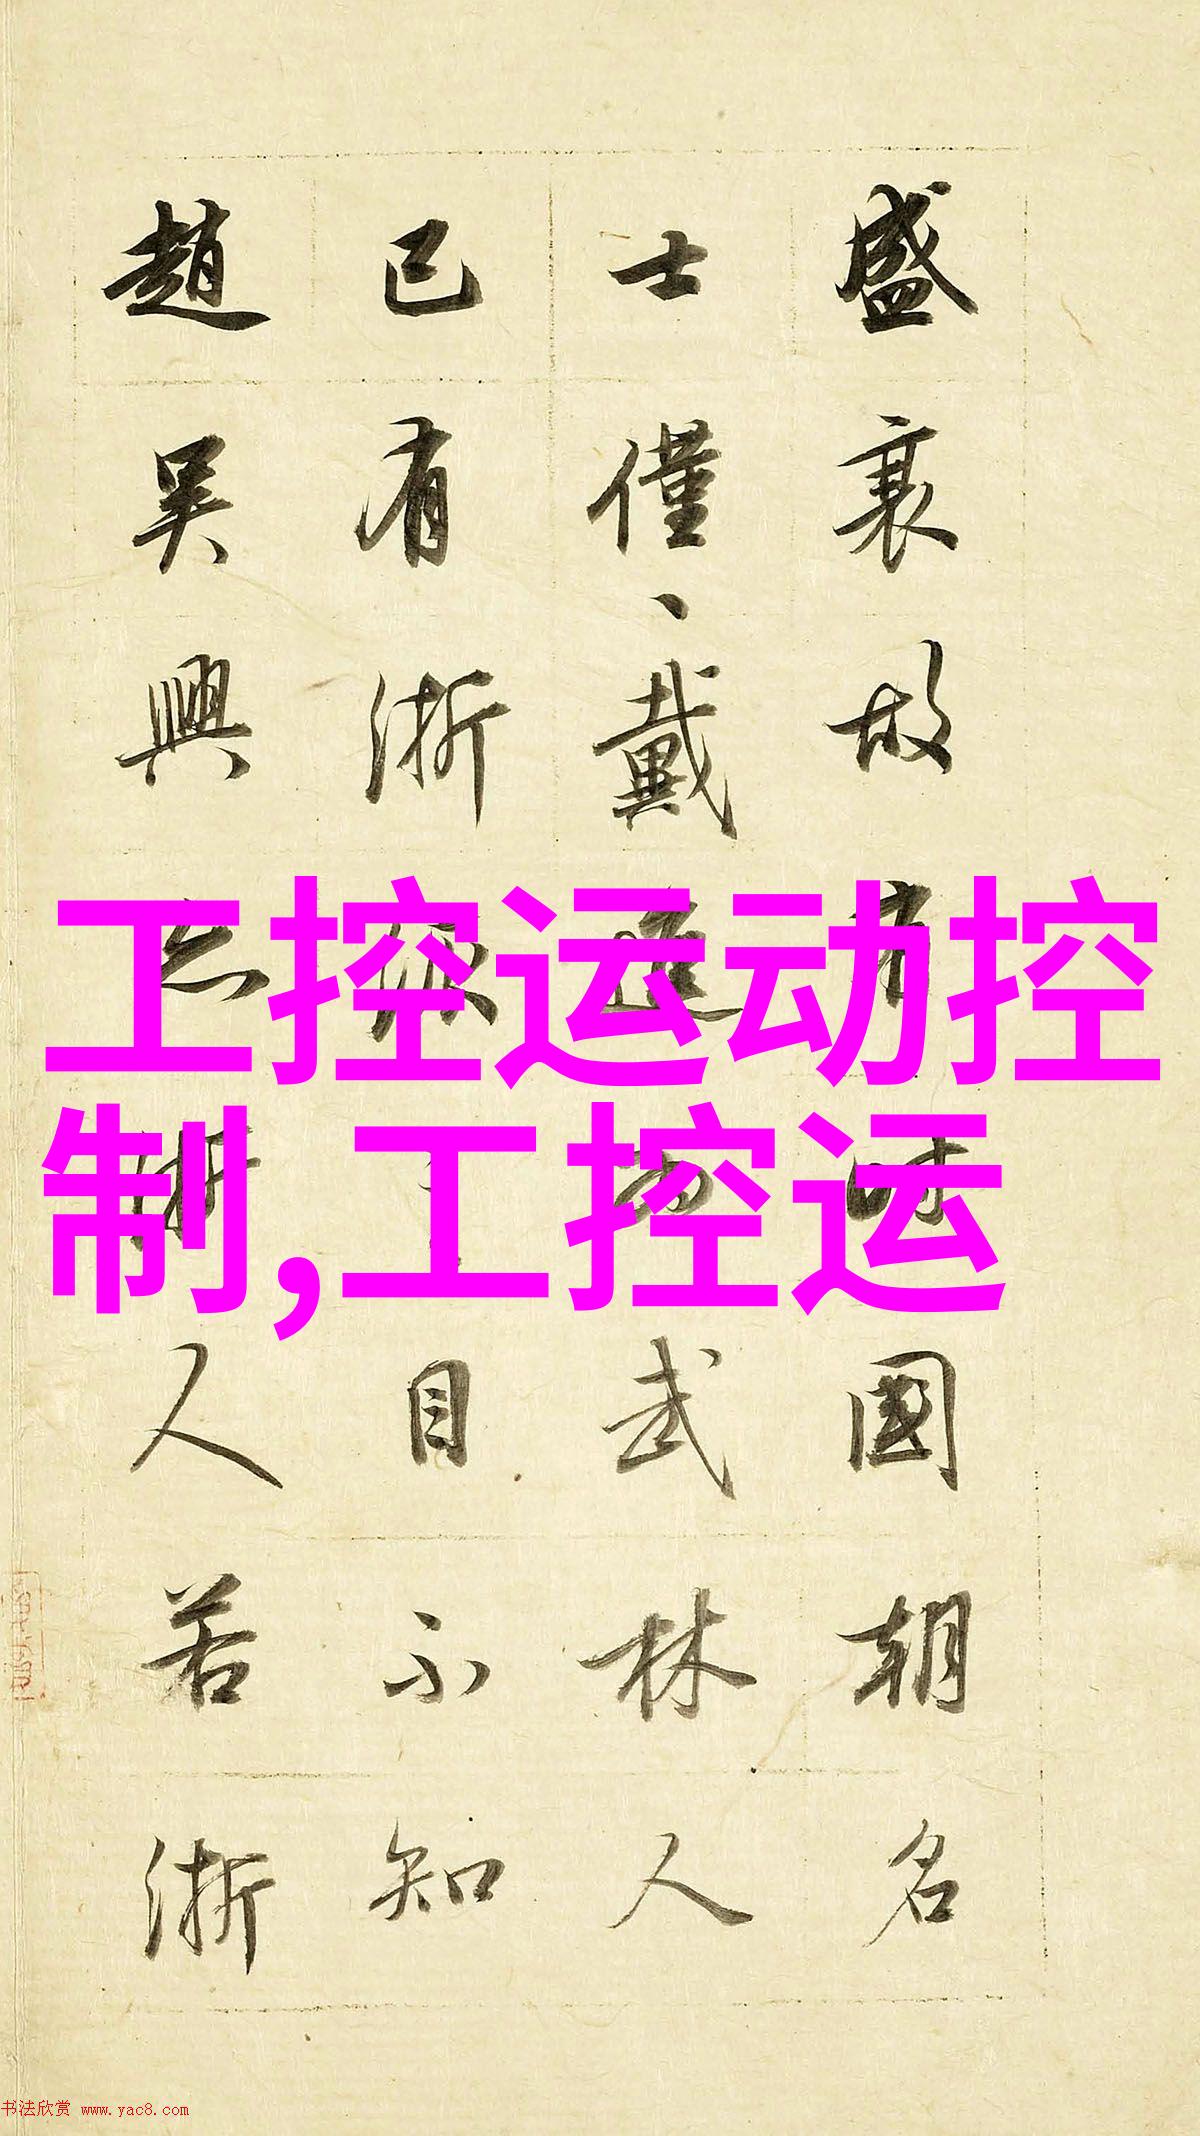 盛衰故有時國朝名
士僅、戴進為武林人
已有浙派目不知
趙吳興亦浙人若浙
工控运动控
制,工控运
书法欣赏 www.yac8.com